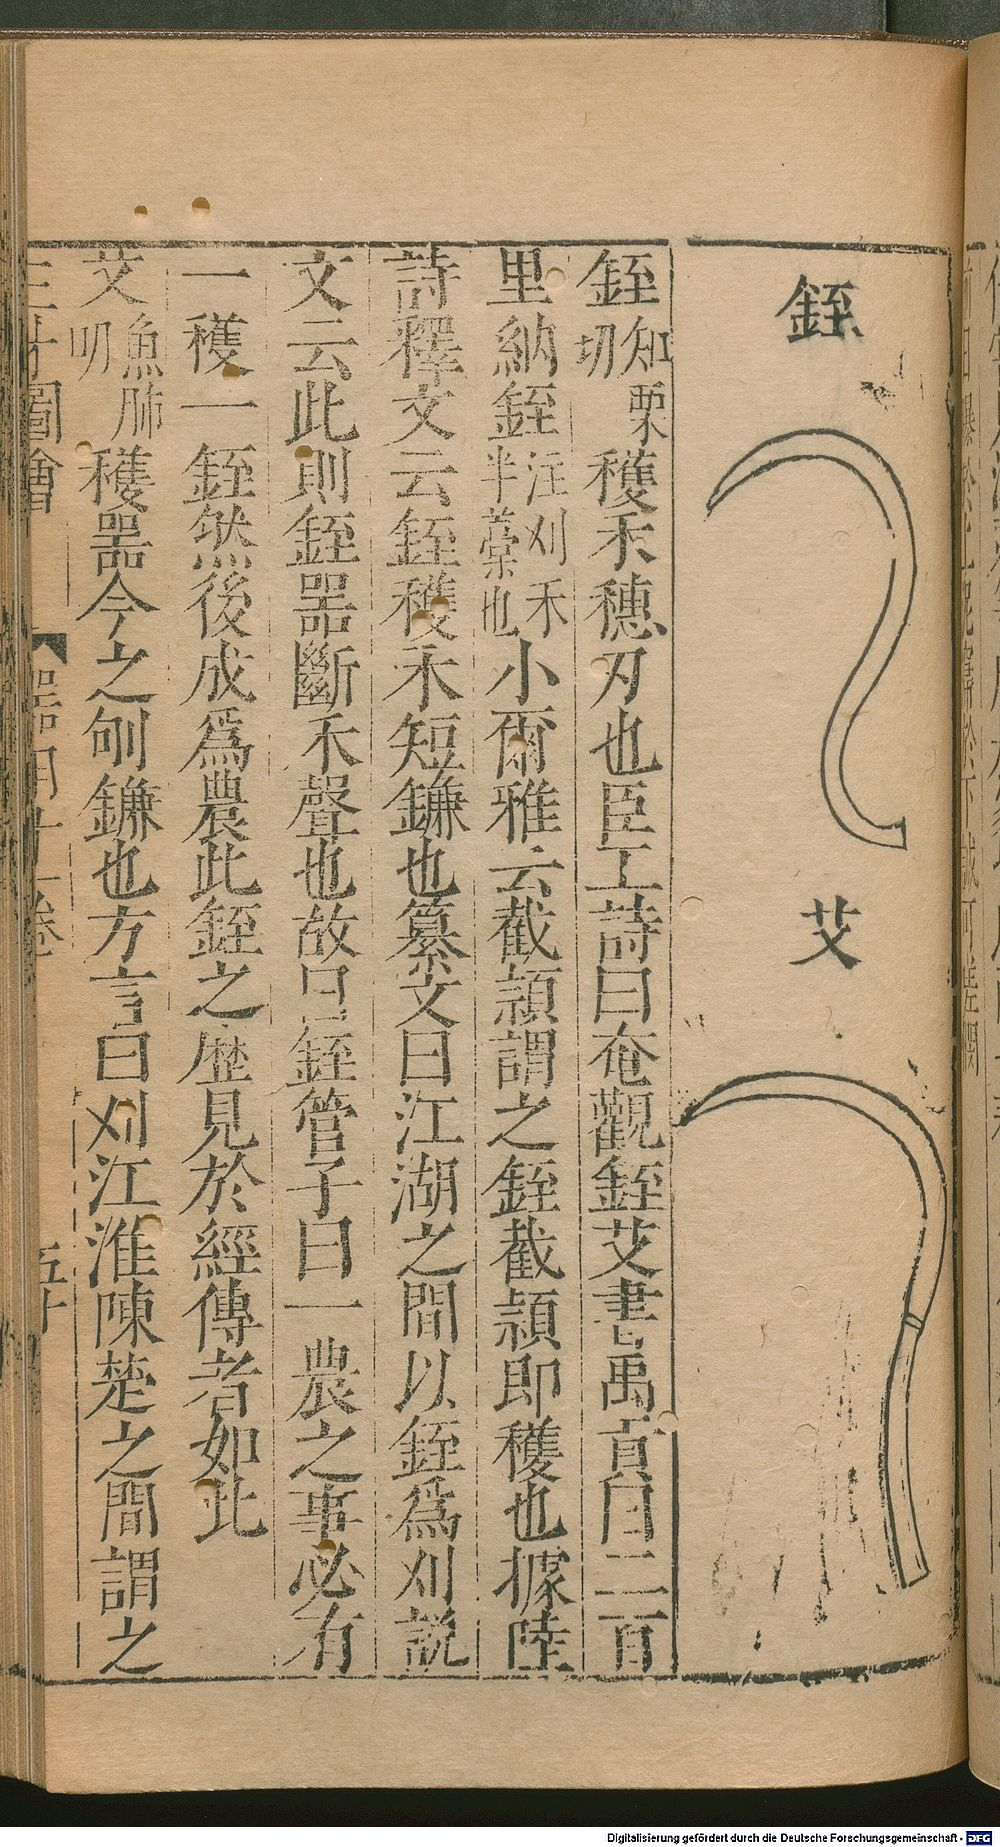 銍
艾
銍知栗切穫禾穗刃也臣工詩曰奄觀銍艾書禹貢曰二百
里納銍注刈禾半藁也小爾雅云截穎謂之銍截穎即穫也據陸
詩釋文云銍穫禾短鐮也纂文曰江湖之間以銍爲刈説
文云此則銍器斷禾聲也故曰銍管子曰一農之事必有
一穫一銍然後成爲農此銍之歷見於經傳者如此
艾魚肺切穫器今之刎鐮也方言曰刈江淮陳楚之間謂之
三才圖會 器用十一卷 五十
Digitalisierung gefördert durch die Deutsche Forschungsgemeinschaft - DFG